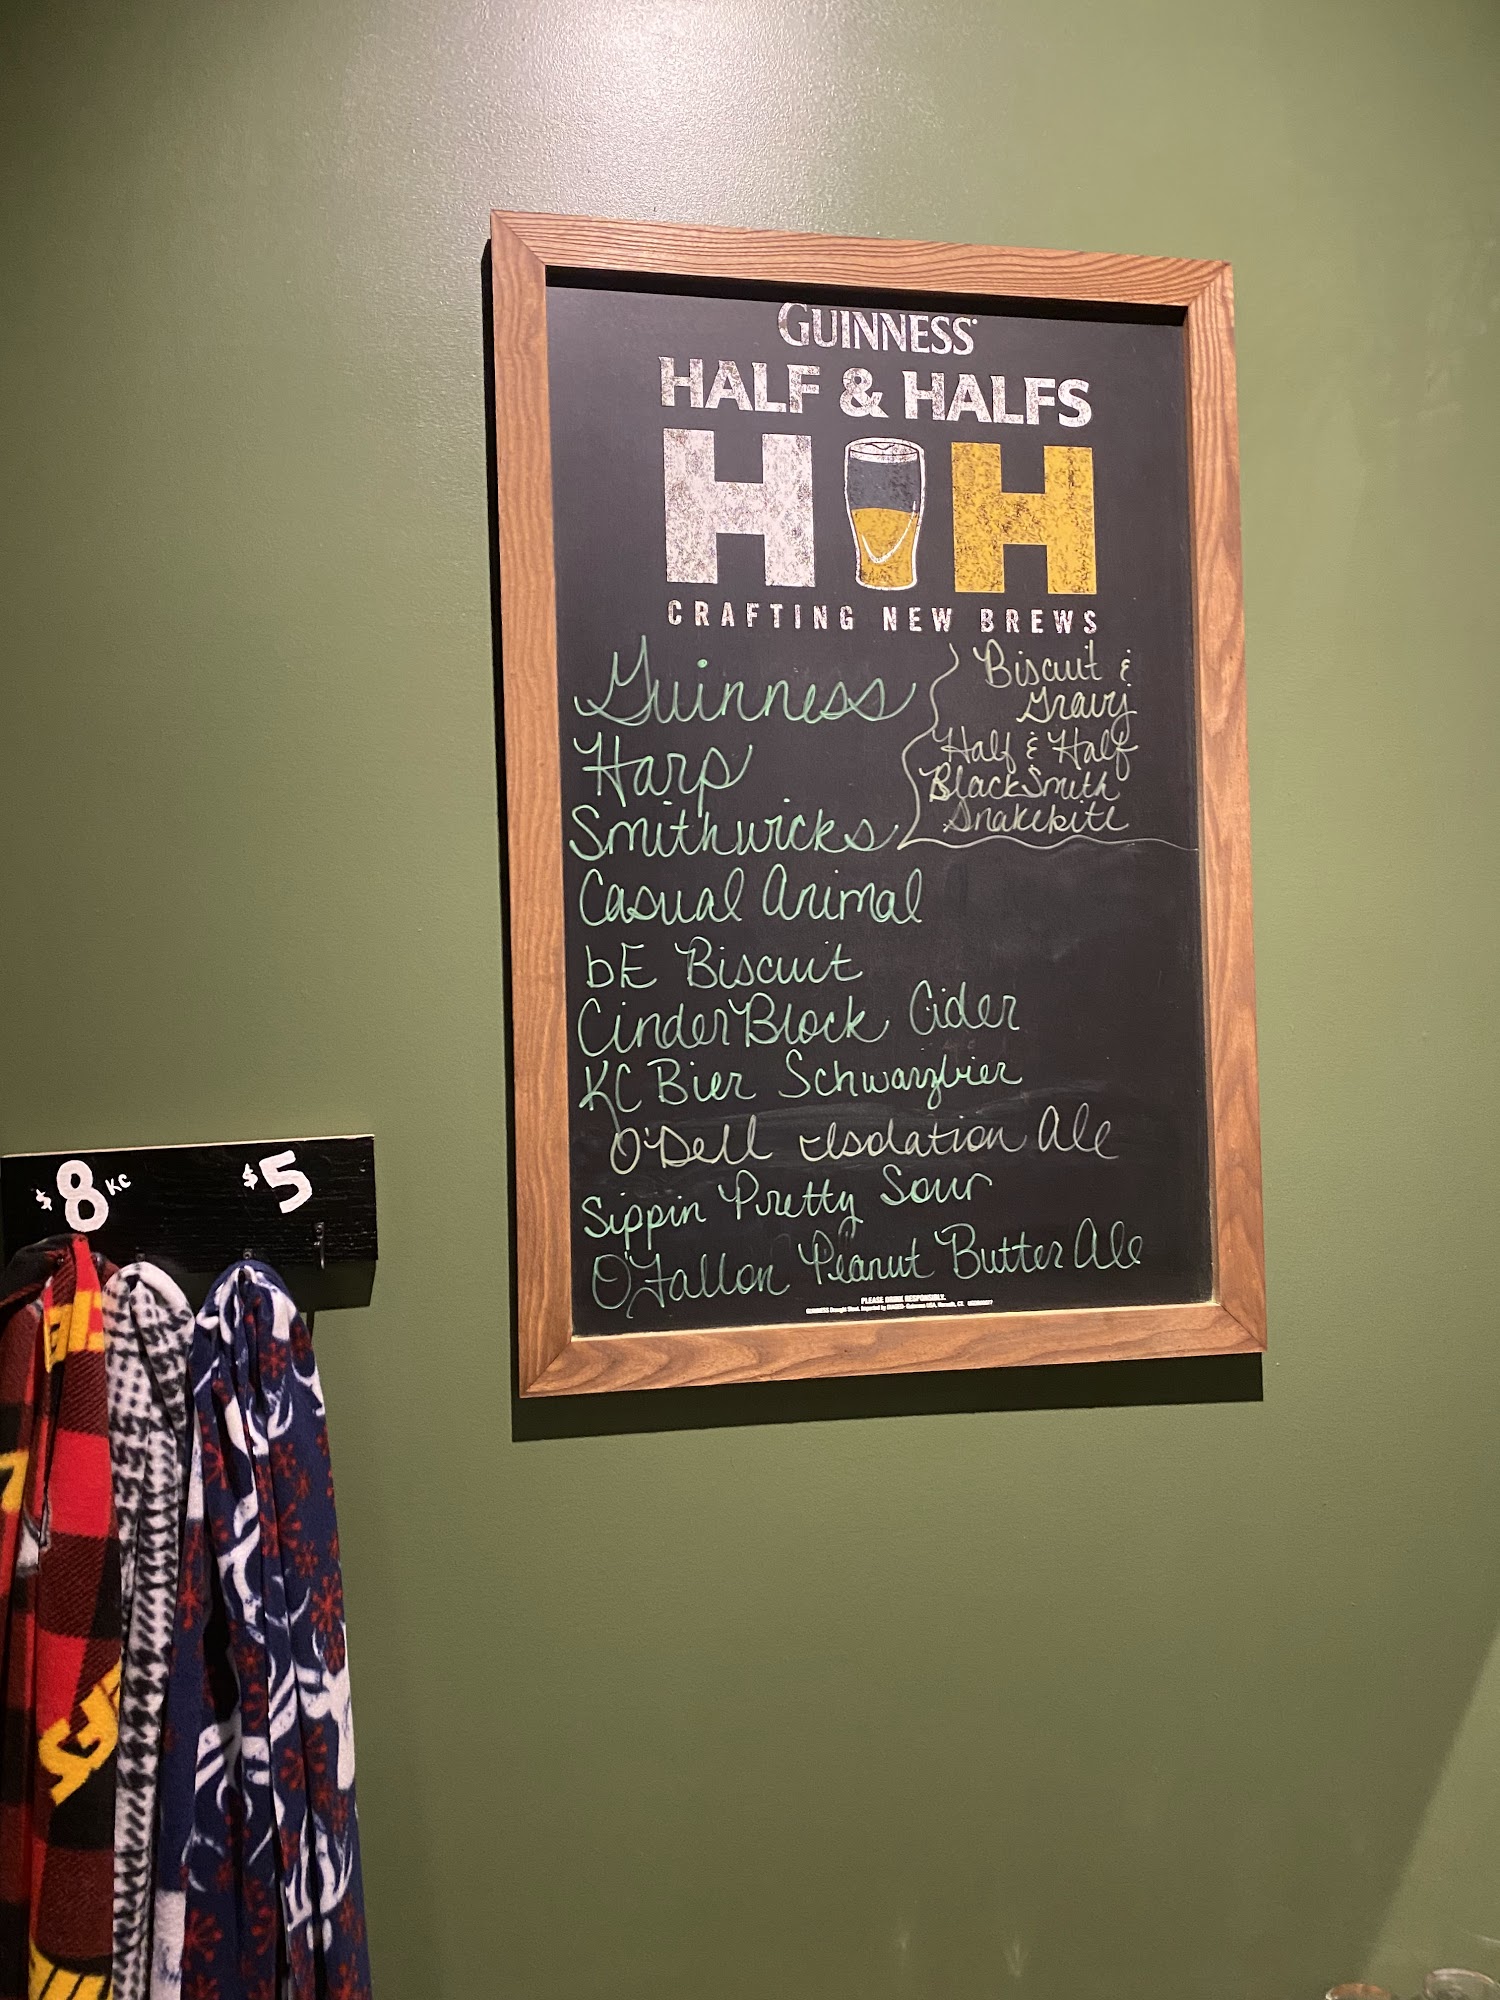 GUINNESS
HALF & HALFS
H H
CRAFTING NEW BREWS
Guinness
Harp
Smithwicks
Casual Animal
bE Biscuit
CinderBlock Cider
KC Bier Schwarzbier
O'Dell Isolation Ale
Sippin Pretty Sour
O'Fallon Peanut Butter Ale
Biscuit &
Gravy
Half & Half
BlackSmith
Snakebite
PLEASE DRINK RESPONSIBLY.
$8 KC
$5